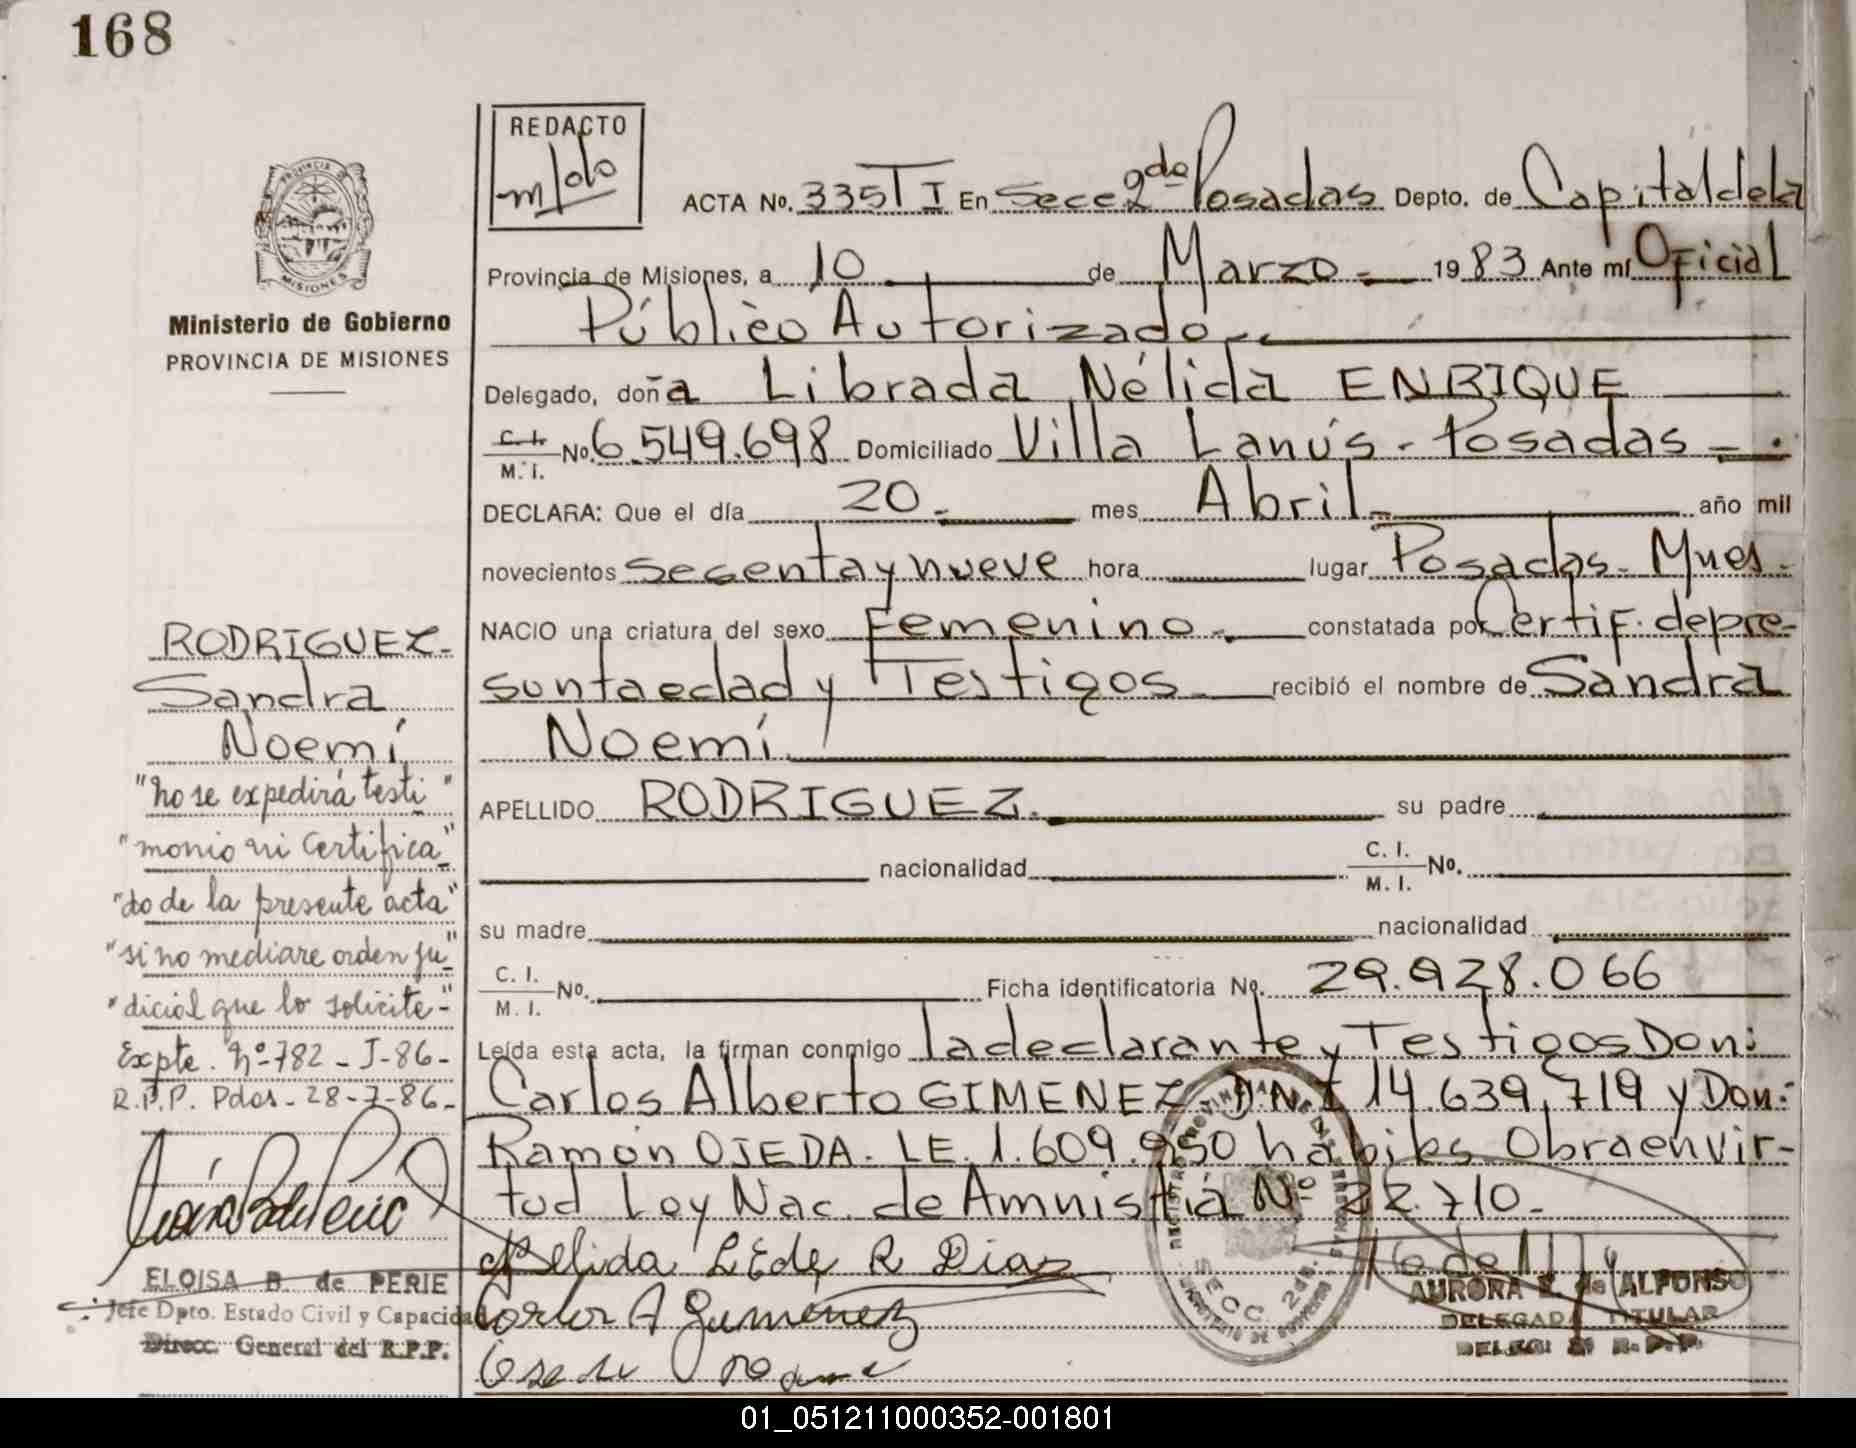 168
REDACTO
ACTA No. 335 T I En Secc 2da Posadas Depto. de Capital de la
Provincia de Misiones, a 10 de Marzo - 1983 Ante mí Oficial
Público Autorizado -
Delegado, doña Librada Nélida ENRIQUE
C. I.
M. I. No. 6.549.698 Domiciliado Villa Lanús - Posadas -
DECLARA: Que el día 20 - mes Abril - año mil
novecientos secenta y nueve hora lugar Posadas - Mnes -
NACIO una criatura del sexo Femenino - constatada por Certif. de pre-
sunta edad y Testigos - recibió el nombre de Sandra
Noemí
APELLIDO RODRIGUEZ. su padre
nacionalidad C. I.
M. I. No.
su madre nacionalidad
C. I.
M. I. No. Ficha identificatoria No. 29.928.066
Leída esta acta, la firman conmigo la declarante y Testigos Don:
Carlos Alberto GIMENEZ DNI 14.639.719 y Don:
Ramón OJEDA. LE. 1.609.950 hábiles Obra en vir-
tud Ley Nac. de Amnistia Nº 22.710 -
Nelida L Ede R Diaz
Carlos A Gimenez
PROVINCIA
MISIONES
Ministerio de Gobierno
PROVINCIA DE MISIONES
RODRIGUEZ -
Sandra
Noemí
"no se expedirá testi"
"monio ni certifica"
"do de la presente acta"
"si no mediare orden ju"
"dicial que lo solicite -"
Expte. Nº 782 - J - 86 -
R.P.P. Pdas - 28-7-86 -
ELOISA B. de PERIE
Jefe Dpto. Estado Civil y Capacidad
Direcc. General del R.P.P.
SECC. 2da.
AURORA E. de ALFONSO
DELEGADA TITULAR
DELEG. 2ª R.P.P.
01_051211000352-001801